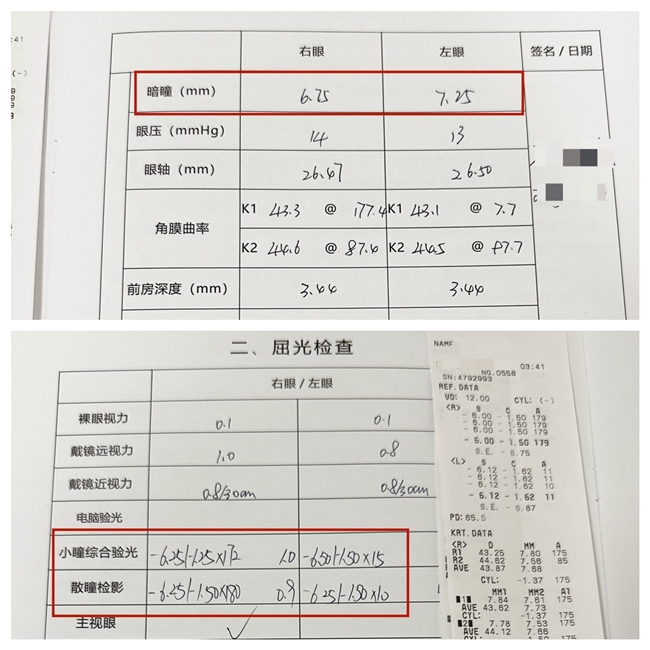 :41
(-)
右眼 左眼 签名/日期
暗瞳(mm) 6.75 7.25
眼压(mmHg) 14 13
眼轴(mm) 26.47 26.50
角膜曲率
K1 43.3 @ 177.4 K1 43.1 @ 7.7
K2 44.6 @ 87.4 K2 44.5 @ 97.7
前房深度(mm) 3.44 3.44
二、屈光检查
右眼/左眼
裸眼视力 0.1 0.1
戴镜远视力 1.0 0.8
戴镜近视力 0.8/30cm 0.8/30cm
电脑验光
小瞳综合验光 -6.25/-1.25×172 1.0 -6.50/-1.50×15
散瞳检影 -6.25/-1.50×180 0.9 -6.25/-1.50×10
主视眼 ✓
NAME
03:41
NO.0558
SN:4792993
REF.DATA
VD: 12.00 CYL: (-)
<R> S C A
- 6.00 - 1.50 179
- 6.00 - 1.50 179
- 6.00 - 1.50 179
- 6.00 - 1.50 179
S.E. - 6.75
<L> S C A
- 6.12 - 1.62 11
- 6.12 - 1.62 11
- 6.12 - 1.62 10
- 6.12 - 1.62 11
S.E. - 6.87
PD: 65.5
KRT.DATA
<R> D MM A
R1 43.25 7.80 175
R2 44.62 7.56 85
AVE 43.87 7.68
CYL: -1.37 175
MM1 MM2 A1
1 7.84 7.61 175
AVE 43.62 7.73
CYL: -1.37 175
2 7.78 7.53 175
AVE 44.12 7.66